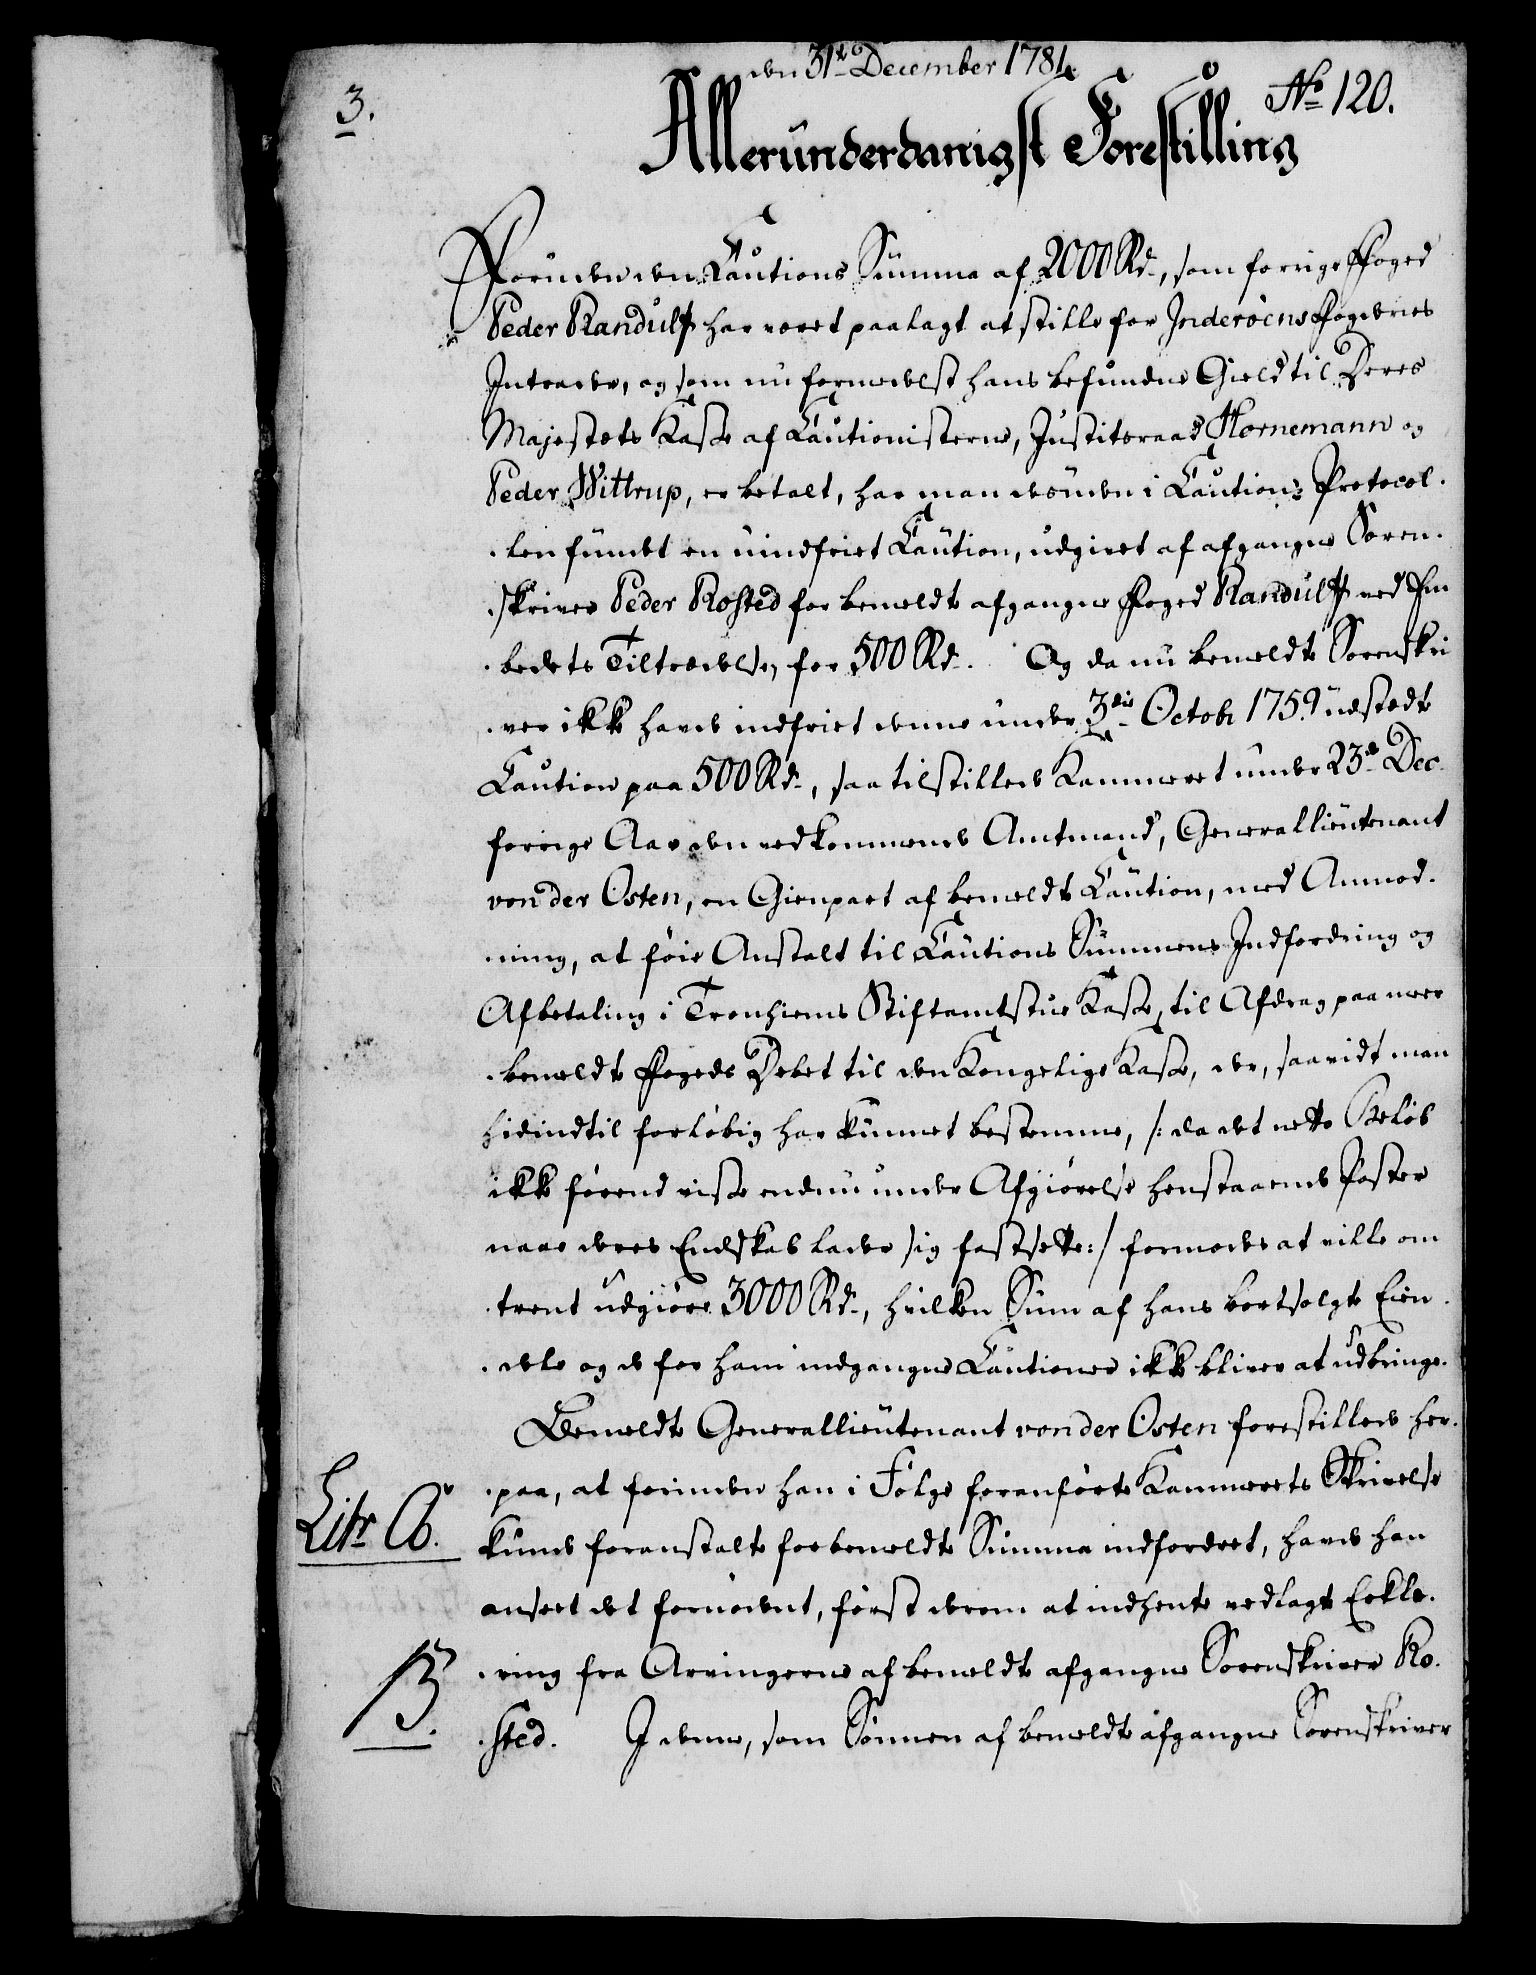 den 31te December 1781.
3.
No 120.
Allerunderdanigst Forestilling
Foruden den Cautions Summa af 2000 Rd., som forrige Foged
Peder Randulff har været paalagt at stille for Inderøens Fogderies
Intrader, og som nu formedelst hans befundne Gield til Deres
Majestæts Kasse af Cautionisterne, Justitsraad Hornemann og
Peder Wittrup, er betalt, har man desuden i Cautions Protocol-
len fundet en uindfriet Caution, udgivet af afgangne Soren-
skriver Peder Rosted for bemeldte afgangne Foged Randulff ved Em
bedets Tiltrædelse, for 500 Rd. Og da nu bemeldte Sorenskri
ver ikke havde indfriet denne under 3die Octobr 1759 udstædte
Caution paa 500 Rd., saa tilstillede Kammeret under 23de Dec.
forrige Aar den vedkommende Amtmand, Generallieutenant
von der Osten, en Gienpart af bemeldte Caution, med Anmod-
ning, at føie Anstalt til Cautions Summens Indfordring og
Afbetaling i Tronhiems Stiftamtstue Kasse, til Afdrag paa meer
bemeldte Fogeds Debet til den Kongelige Kasse, der, saavidt man
hidindtil forløbig har kunnet bestemme, /: da det nette Beløb
ikke førend visse endnu under Afgiørelse henstaaende Poster
naae deres Endskab lader sig fastsætte :/ formodes at ville om
trent udgiøre 3000 Rd., hvilken Sum af hans bortsolgte Eien-
dele og de for ham indgangne Cautioner ikke bliver at udbringe.
Bemeldte Generallieutenant von der Osten forestillede her-
paa, at forinden han i Følge foranførte Kammerets Skrivelse
Litr A.
kunde foranstalte forbemeldte Summa indfordret, havde han
anseet det fornødent, først derom at indhente vedlagte Erklæ-
ring fra Arvingerne af bemeldte afgangne Sorenskriver Ro-
B.
sted. I denne, som Sønnen af bemeldte afgangne Sorenskriver